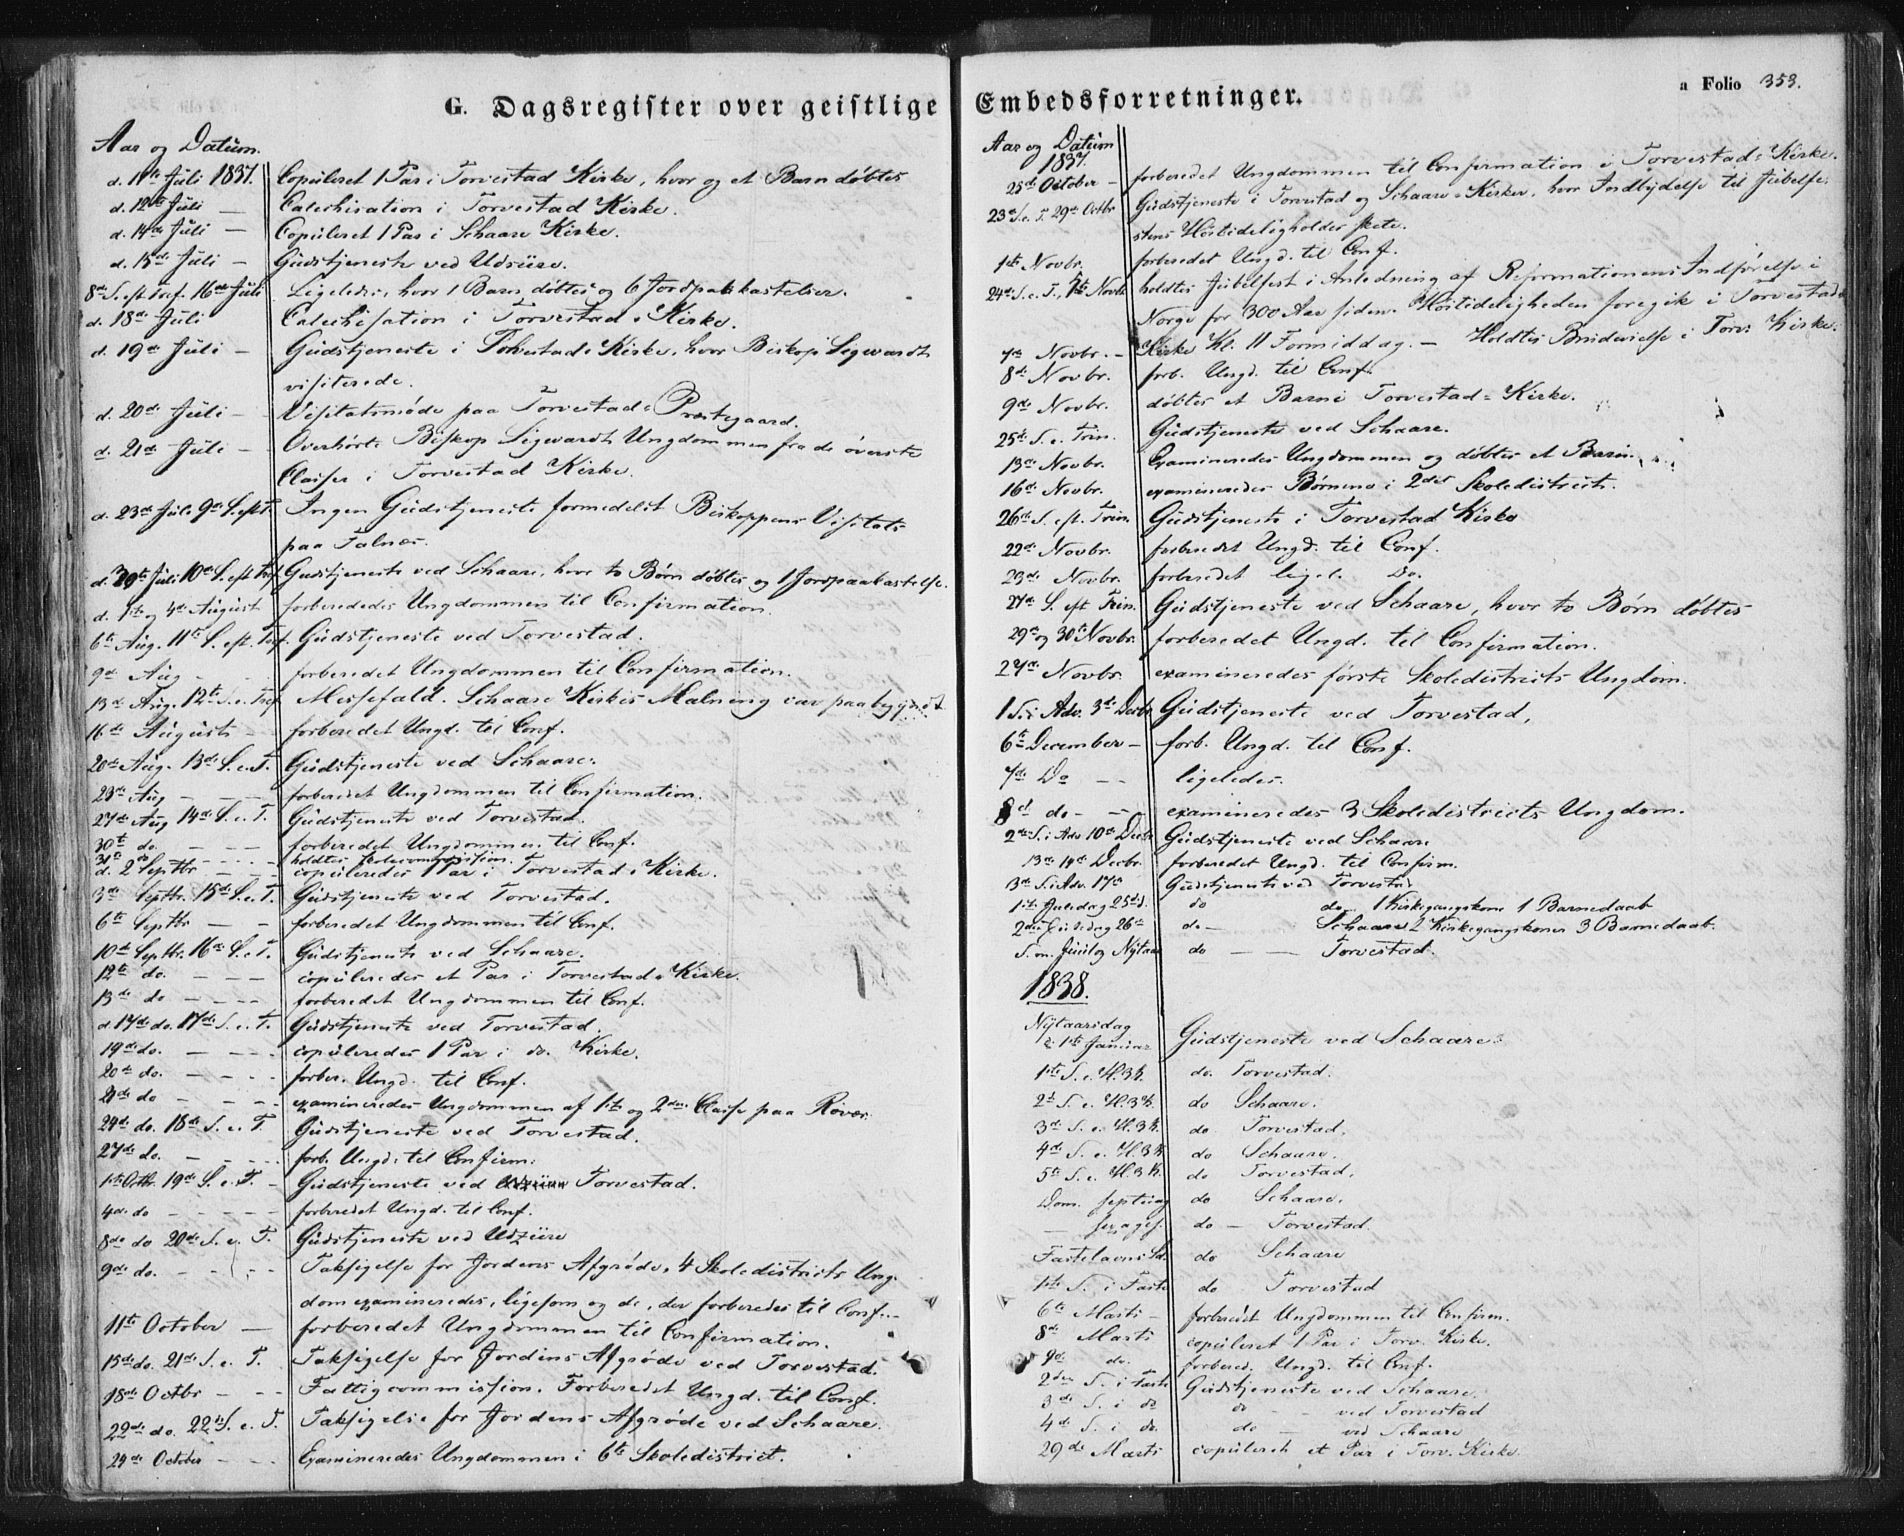 G. Dagsregister over geistlige
Aar og Datum.
d. 11te Juli 1837. Copuleret 1 Par i Torvestad Kirke, hvor og et Barn døbtes
d. 12te Juli — Catechisation i Torvestad Kirke.
d. 14de Juli — Copuleret 1 Par i Schaare Kirke.
d. 15de Juli — Gudstjeneste ved Udsire.
8de S. eft Tref. 16de Juli Ligeledes, hvor 1 Barn døbtes og 6 Jordpaakastelser.
d. 18de Juli Catechisation i Torvestad Kirke.
d. 19de Juli — Gudstjeneste i Torvestads Kirke, hvor Biskop Sigwardt
visiterede.
d. 20de Juli — Visitatsmøde paa Torvestads Præstegaard.
d. 21de Juli — Overhørte Biskop Sigwardt Ungdommen fra de øverste
Classer i Torvestad Kirke.
d. 23de Juli 9de S. eft T. Ingen Gudstjeneste formedelst Biskoppens Visitats
paa Falnæs.
d. 30te Juli 10de S. eft Tref Gudstjeneste ved Schaare, hvor to Børn døbtes og 1 Jordpaakastelse.
d. 1te og 4de August forberededes Ungdommen til Confirmation.
6te Aug. 11te S. eft. Tref. Gudstjeneste ved Torvestad.
9de Aug — forberedet Ungdommen til Confirmation.
13de Aug. 12te S. e. Tref Messefald. Schaare Kirkes Malning var paabegyndt
16de August — forberedet Ungd. til Conf.
20de Aug. 13de S. e. T. Gudstjeneste ved Schaare.
23de Aug — — — forberedet Ungdommen til Confirmation.
27de Aug 14de S. e. T. Gudstjeneste ved Torvestad.
30te do. — — — forberedet Ungdommen til Conf.
31te do — — — holdtes Skolecommission.
d. 2 Septbr — — copuleredes 1 Par i Torvestads Kirke.
3de Septbr. 15de S. e. T. Gudstjeneste ved Torvestad.
6te Septbr — — forberedet Ungdommen til Conf.
10de Septbr. 16de S. e. T. Gudstjeneste ved Schaare.
12te do. — — — copuleredes et Par i Torvestads Kirke.
13de do — — — forberedet Ungdommen til Conf.
d. 17de do. 17de S. e. T. Gudstjeneste ved Torvestad.
19de do. — — — copuleredes 1 Par i do. Kirke.
20de do. — — — forber. Ungd. til Conf.
21de do — — — examineredes Ungdommen af 1te og 2den Classe paa Røvær.
24de do. 18de S. e. T. Gudstjeneste ved Torvestad.
27de do. — — — forb. Ungd. til Confirm:
1te Octbr. 19de S. e. T. — Gudstjeneste ved Torvestad.
4de do — — — forberedet Ungd. til Conf.
8de do 20de S. e. T. Gudstjeneste ved Udzire
9de do. — — — Taksigelse for Jordens Afgrøde. 4 Skoledistricts Ung-
dom examineredes, ligesom og de, der forberedes til Conf.
11te October — forberedet Ungdommen til Confirmation.
15de do. 21de S. e. T. Taksigelse for Jordens Afgrøde ved Torvestad.
18de Octbr — — Fattigcommission. Forberedet Ungd. til Conf.
22de do. 22de S. e. T. Taksigelse for Jordens Afgrøde ved Schaare.
24de October — — Examineredes Ungdommen i 6te Skoledistrict.
Embedsforretninger.
a Folio 353.
Aar og Datum
1837.
25de October — forberedet Ungdommen til Confirmation i Torvestads Kirke.
23de S. e. T. 29de Octbr Gudstjeneste i Torvestad og Schaare Kirker, hvor Indbydelse til Jubelfe-
stens Høitideligholdes skete.
1te Novbr. forberedet Ungd. til Conf.
24de S. e. T., 5te Novbr holdtes Jubelfest i Anledning af Reformationens Indførelse i
Norge for 300 Aar siden. Høitideligheden foregik i Torvestads
Kirke Kl. 11 Formiddag. —
7de Novbr. — Holdtes Brudevielse i Torv: Kirke.
8de Novbr. forb. Ungd. til Conf.
9de Novbr. døbtes et Barn i Torvestad Kirke.
25de S. e. Trin. Gudstjeneste ved Schaare.
13de Novbr. Examineredes Ungdommen og døbtes et Barn.
16de Novbr. examineredes Børnene i 2det Skoledistrict.
26de S. eft. Trin. Gudstjeneste i Torvestad Kirke
22de Novbr. forberedet Ungd. til Conf.
23de Novbr. forberedet ligel. Do.
27de S. eft Trin. Gudstjeneste ved Schaare, hvor to Børn døbtes
29de og 30te Novbr. forberedet Ungd. til Confirmation.
27de Novbr. examineredes første Skoledistricts Ungdom.
1 S. i Adv. 3de Decbr Gudstjeneste ved Torvestad.
6te December — forb. Ungd. til Conf.
7de Do — — ligeledes.
8d do — — examineredes 3 Skoledistricts Ungdom.
2de S. i Adv 10de Decbr Gudstjeneste ved Schaare
13de 14de Decbr. forberedet Ungd. til Confirm.
3de S. i Adv. 17de Gudstjeneste ved Torvestad
1te Juledag 25de do do 1 Kirkegangskone 1 Barnedaab
2den Juledag 26de do — Schaare 2 Kirkegangskoner 3 Barnedaab.
S. m. Juul og Nytaar do — — Torvestad.
1838.
Nytaarsdag
d. 1te Januar Gudstjeneste ved Schaare.
1te S. e. H. 3 K. do. Torvestad.
2d S. e. H. 3 K. do Schaare.
3de S. e. H. 3 K. do Torvestad.
4de S. e. H. 3 K do Schaare.
5te S. e. H. 3 K. do Torvestad.
Dom. septuag do Schaare.
— sexages. do — Torvestad.
Fastelavns Sd. do Schaare
1te S. i Faste do Torvestad
6te Marts — forberedt Ungdommen til Confirm.
8de Marts copuleret 1 Par i Torv. Kirke.
9de do. forbered. Ungd. til Conf.
2den S. i Faste Gudstjeneste ved Schaare.
3de S. i do do — — ved Torvestad
4de S. i do. do — ved Schaare
29de Marts copuleret et Par i Torv. Kirke.